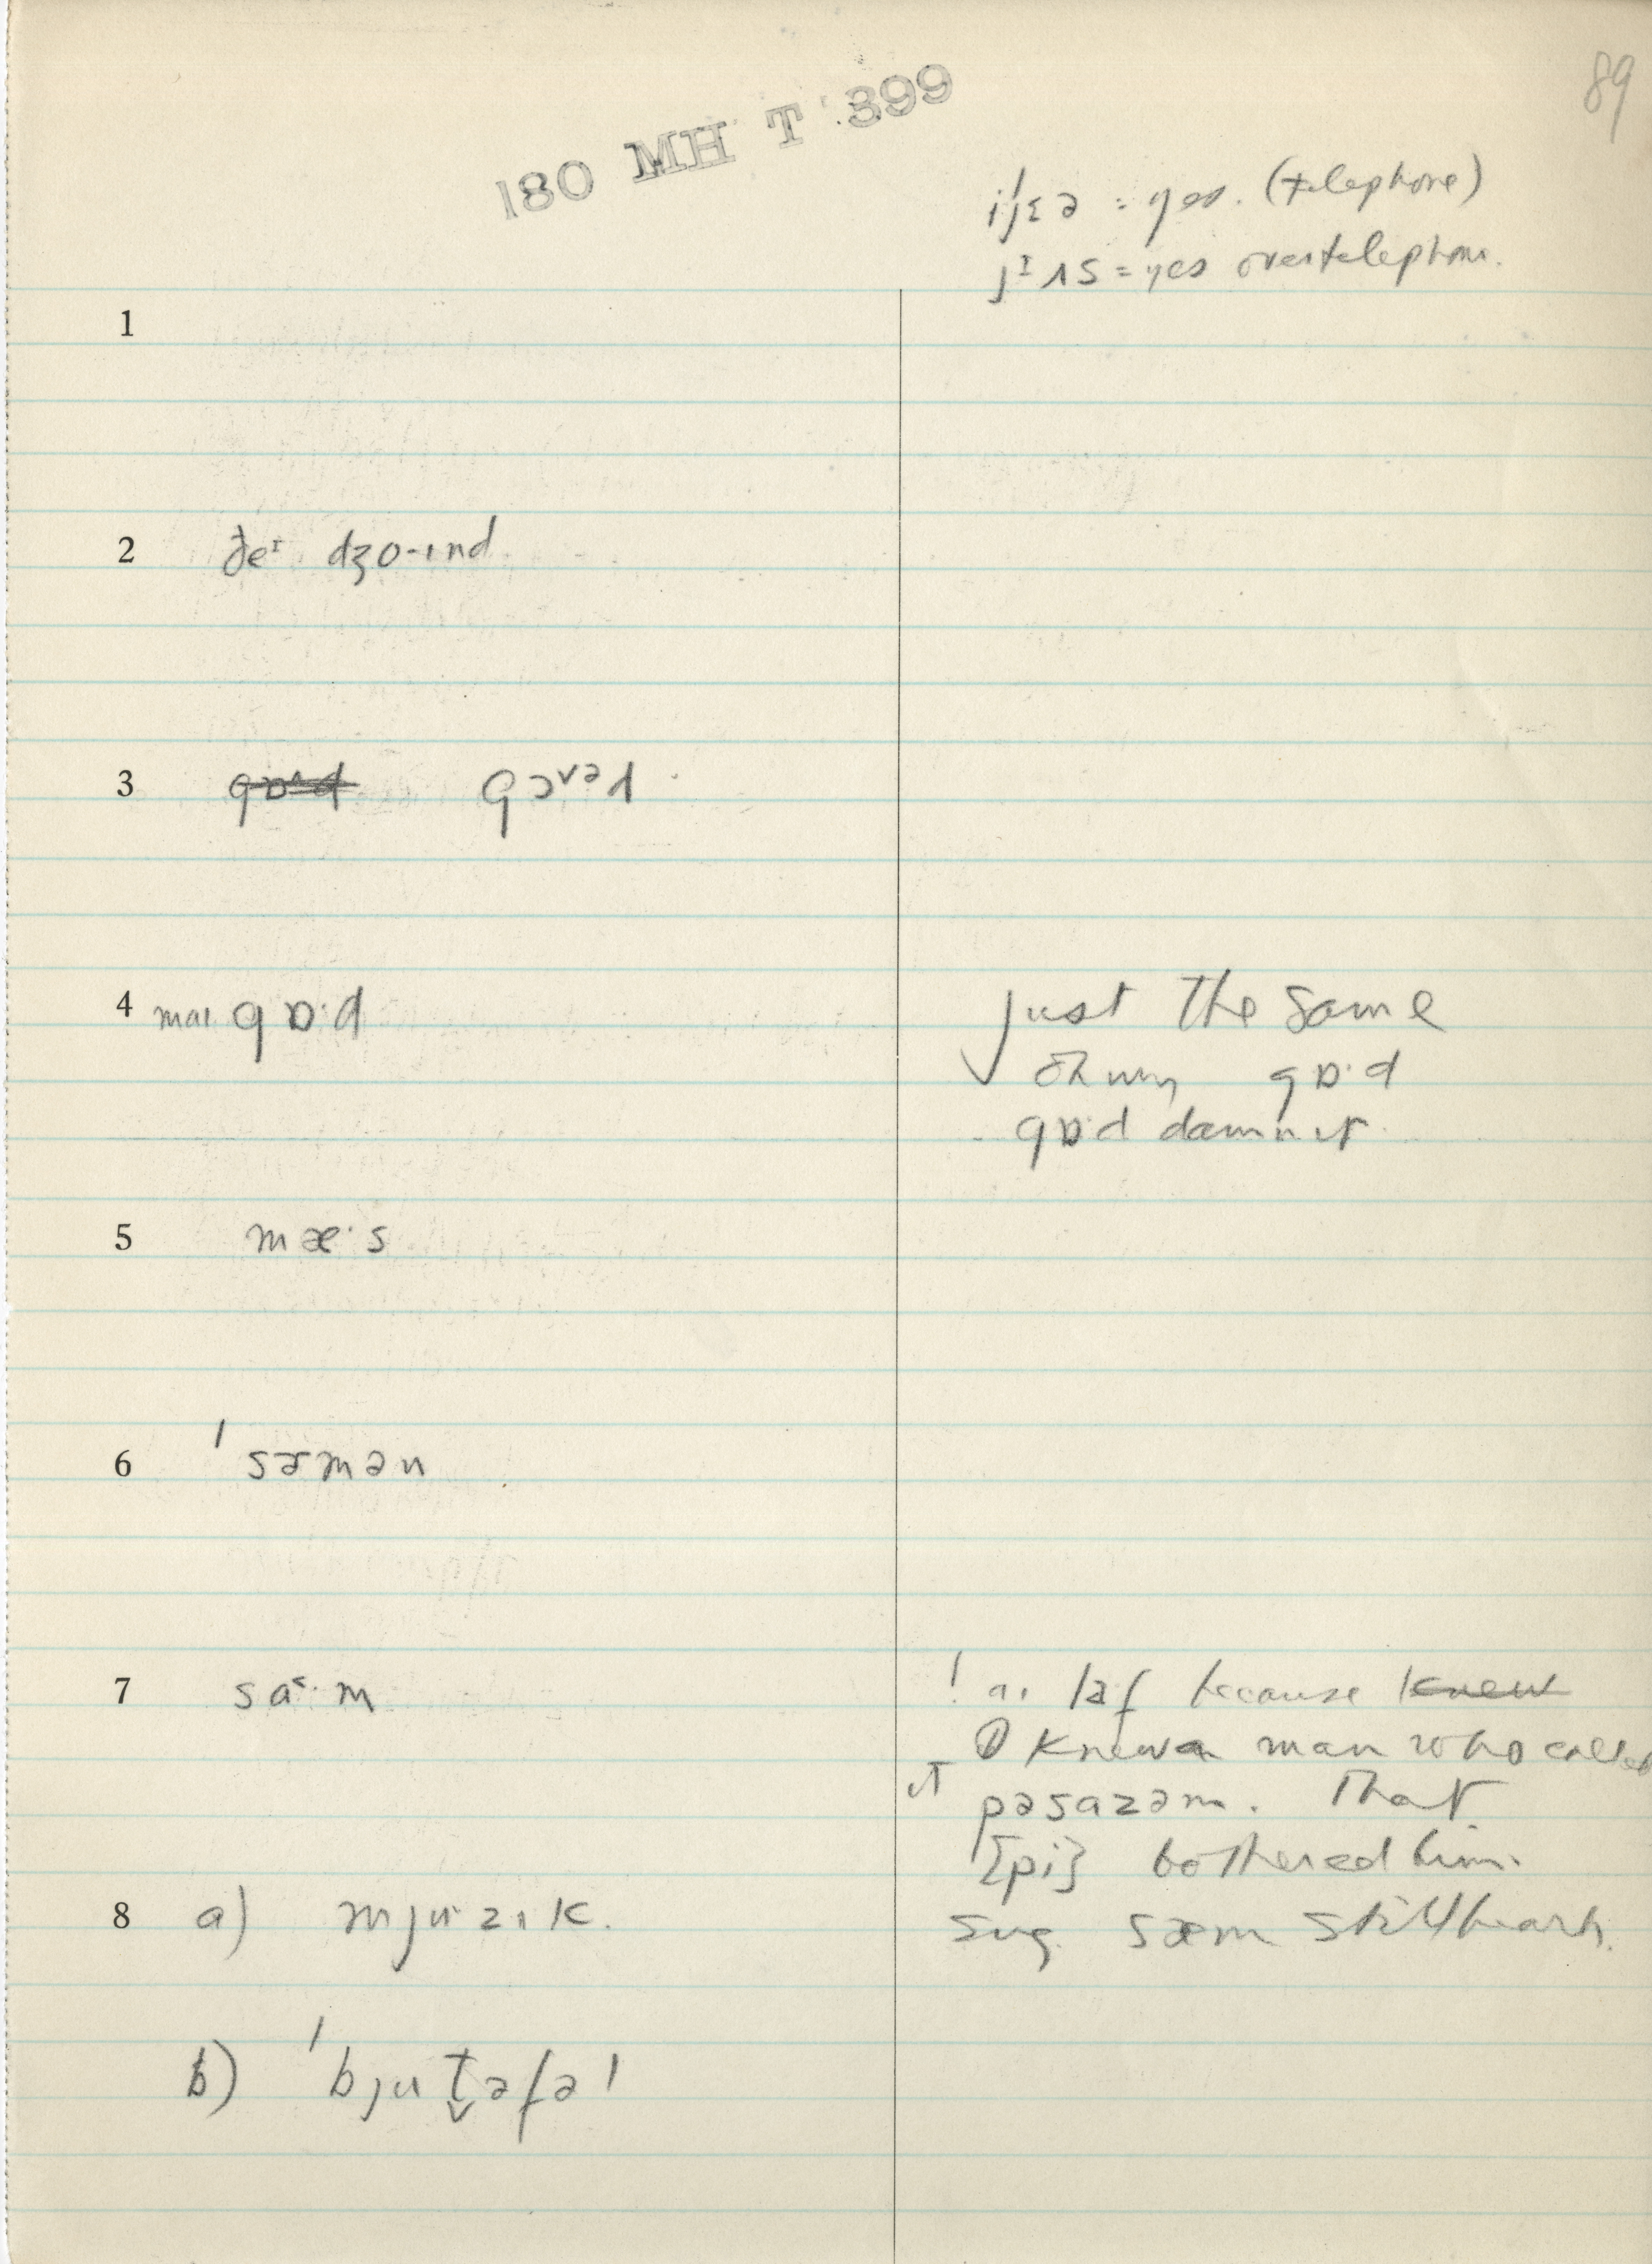 89
180 MH T 399
ijɛə = yes. (telephone)
jɪʌs = yes over telephone.
1
2 ðeɪ dʒo-ɪnd
3 gɒˑd gɔᵛᵊl
4 maɪ gɒ·d
Just the same
oh my gɒ·d
gɒ·d damn it
5 mæ·s
6 ˈsɜmən
7 sa˂·m
! aɪ laf because knew
I knew a man who called
it pəsazəm. That
[pi] bothered him.
8 a) mjuˑzɪk.
sug. sæm still heard.
b) ˈbjut̬əfəl